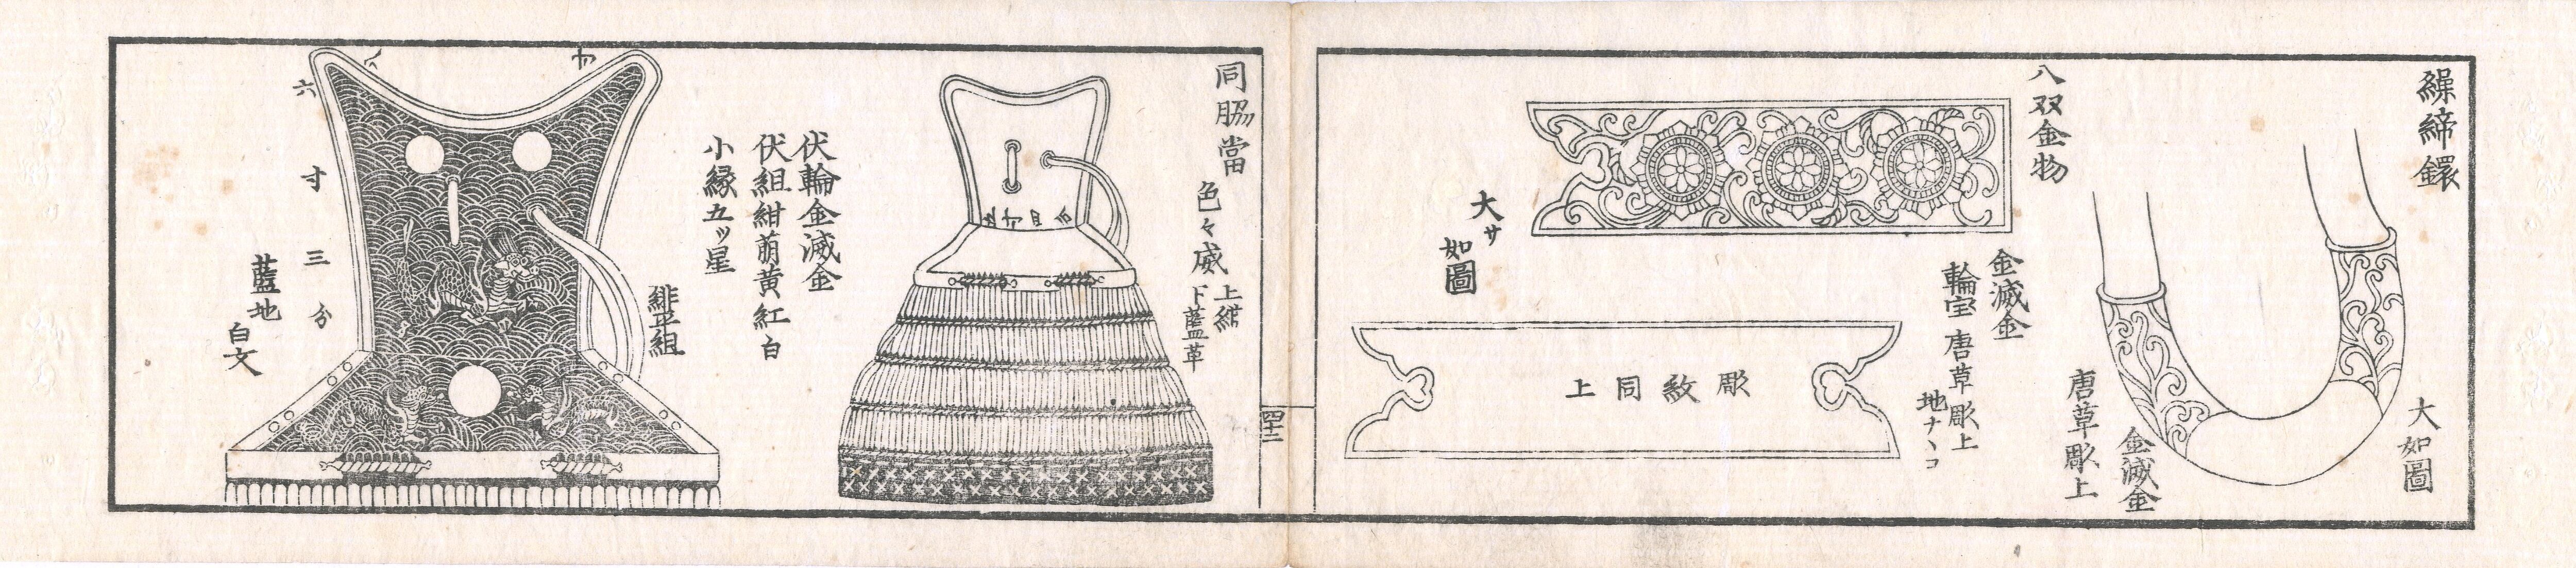 繰締鐶
大如圖
金滅金
唐草彫上
八双金物
金滅金
輪宝 唐草彫上
地ナヽコ
大サ
如圖
彫紋同上
四十二
同脇當
色々威
上紺
下藍革
伏輪金滅金
伏組紺萠黄紅白
小縁五ツ星
六寸三分
藍地
白文